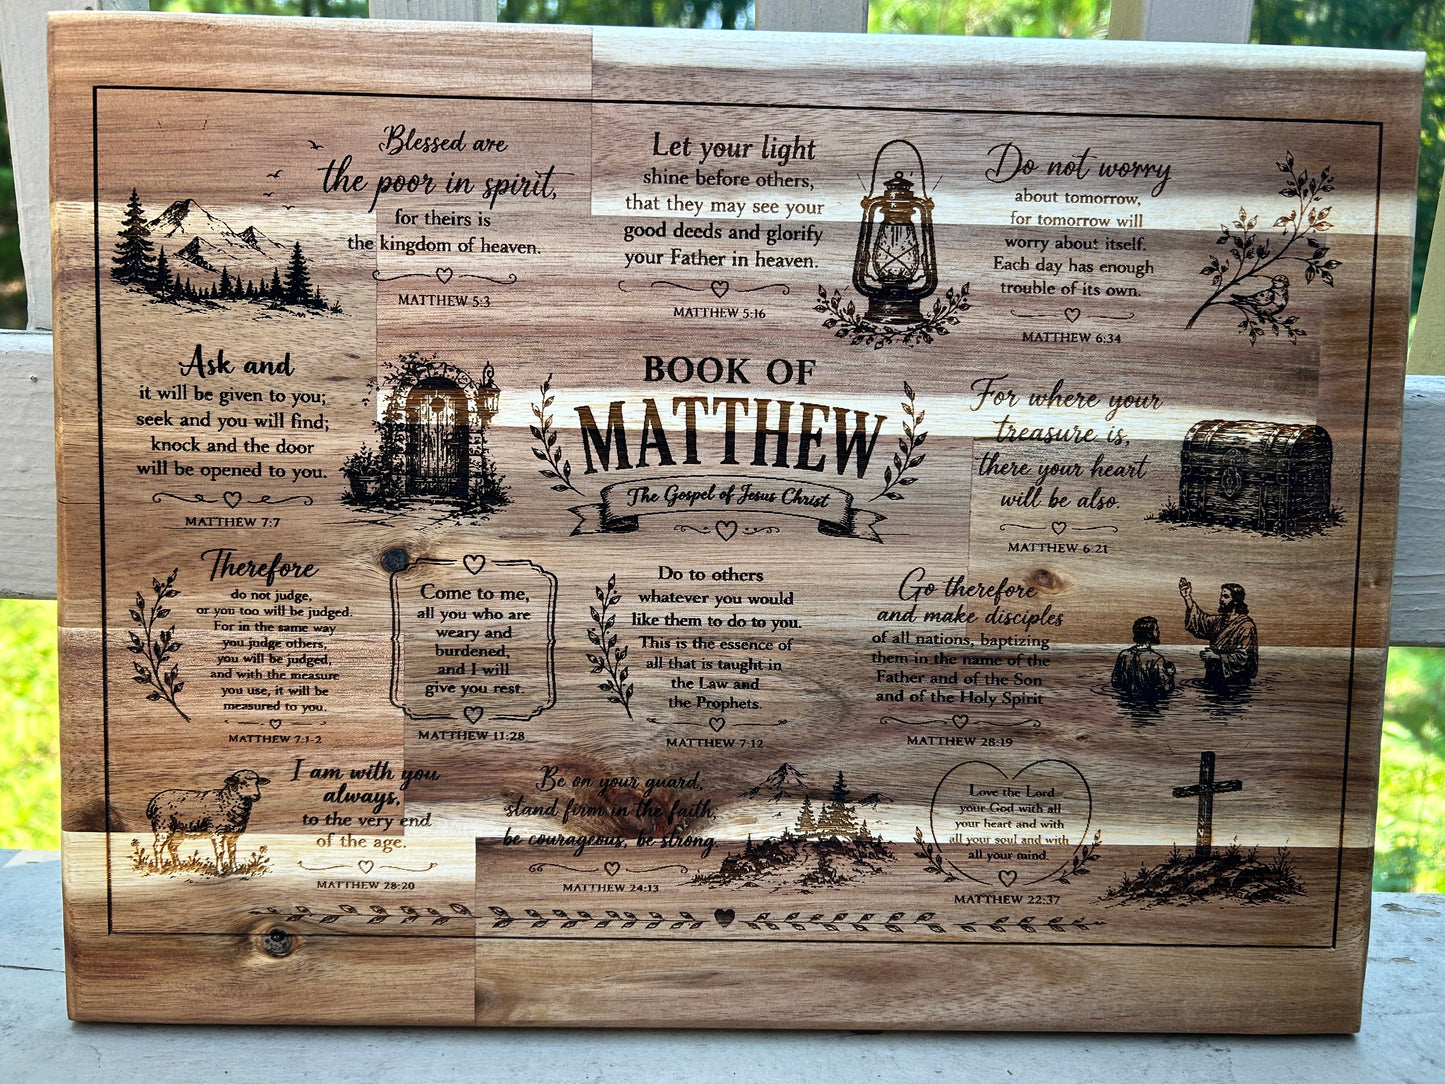 Blessed are
the poor in spirit,
for theirs is
the kingdom of heaven.
MATTHEW 5:3
Let your light
shine before others,
that they may see your
good deeds and glorify
your Father in heaven.
MATTHEW 5:16
Do not worry
about tomorrow,
for tomorrow will
worry about itself.
Each day has enough
trouble of its own.
MATTHEW 6:34
Ask and
it will be given to you;
seek and you will find;
knock and the door
will be opened to you.
MATTHEW 7:7
BOOK OF
MATTHEW
The Gospel of Jesus Christ
For where your
treasure is,
there your heart
will be also.
MATTHEW 6:21
Therefore
do not judge,
or you too will be judged.
For in the same way
you judge others,
you will be judged,
and with the measure
you use, it will be
measured to you.
MATTHEW 7:1-2
Come to me,
all you who are
weary and
burdened,
and I will
give you rest.
MATTHEW 11:28
Do to others
whatever you would
like them to do to you.
This is the essence of
all that is taught in
the Law and
the Prophets.
MATTHEW 7:12
Go therefore
and make disciples
of all nations, baptizing
them in the name of the
Father and of the Son
and of the Holy Spirit
MATTHEW 28:19
I am with you
always,
to the very end
of the age.
MATTHEW 28:20
Be on your guard,
stand firm in the faith,
be courageous, be strong.
MATTHEW 24:13
Love the Lord
your God with all
your heart and with
all your soul and with
all your mind.
MATTHEW 22:37